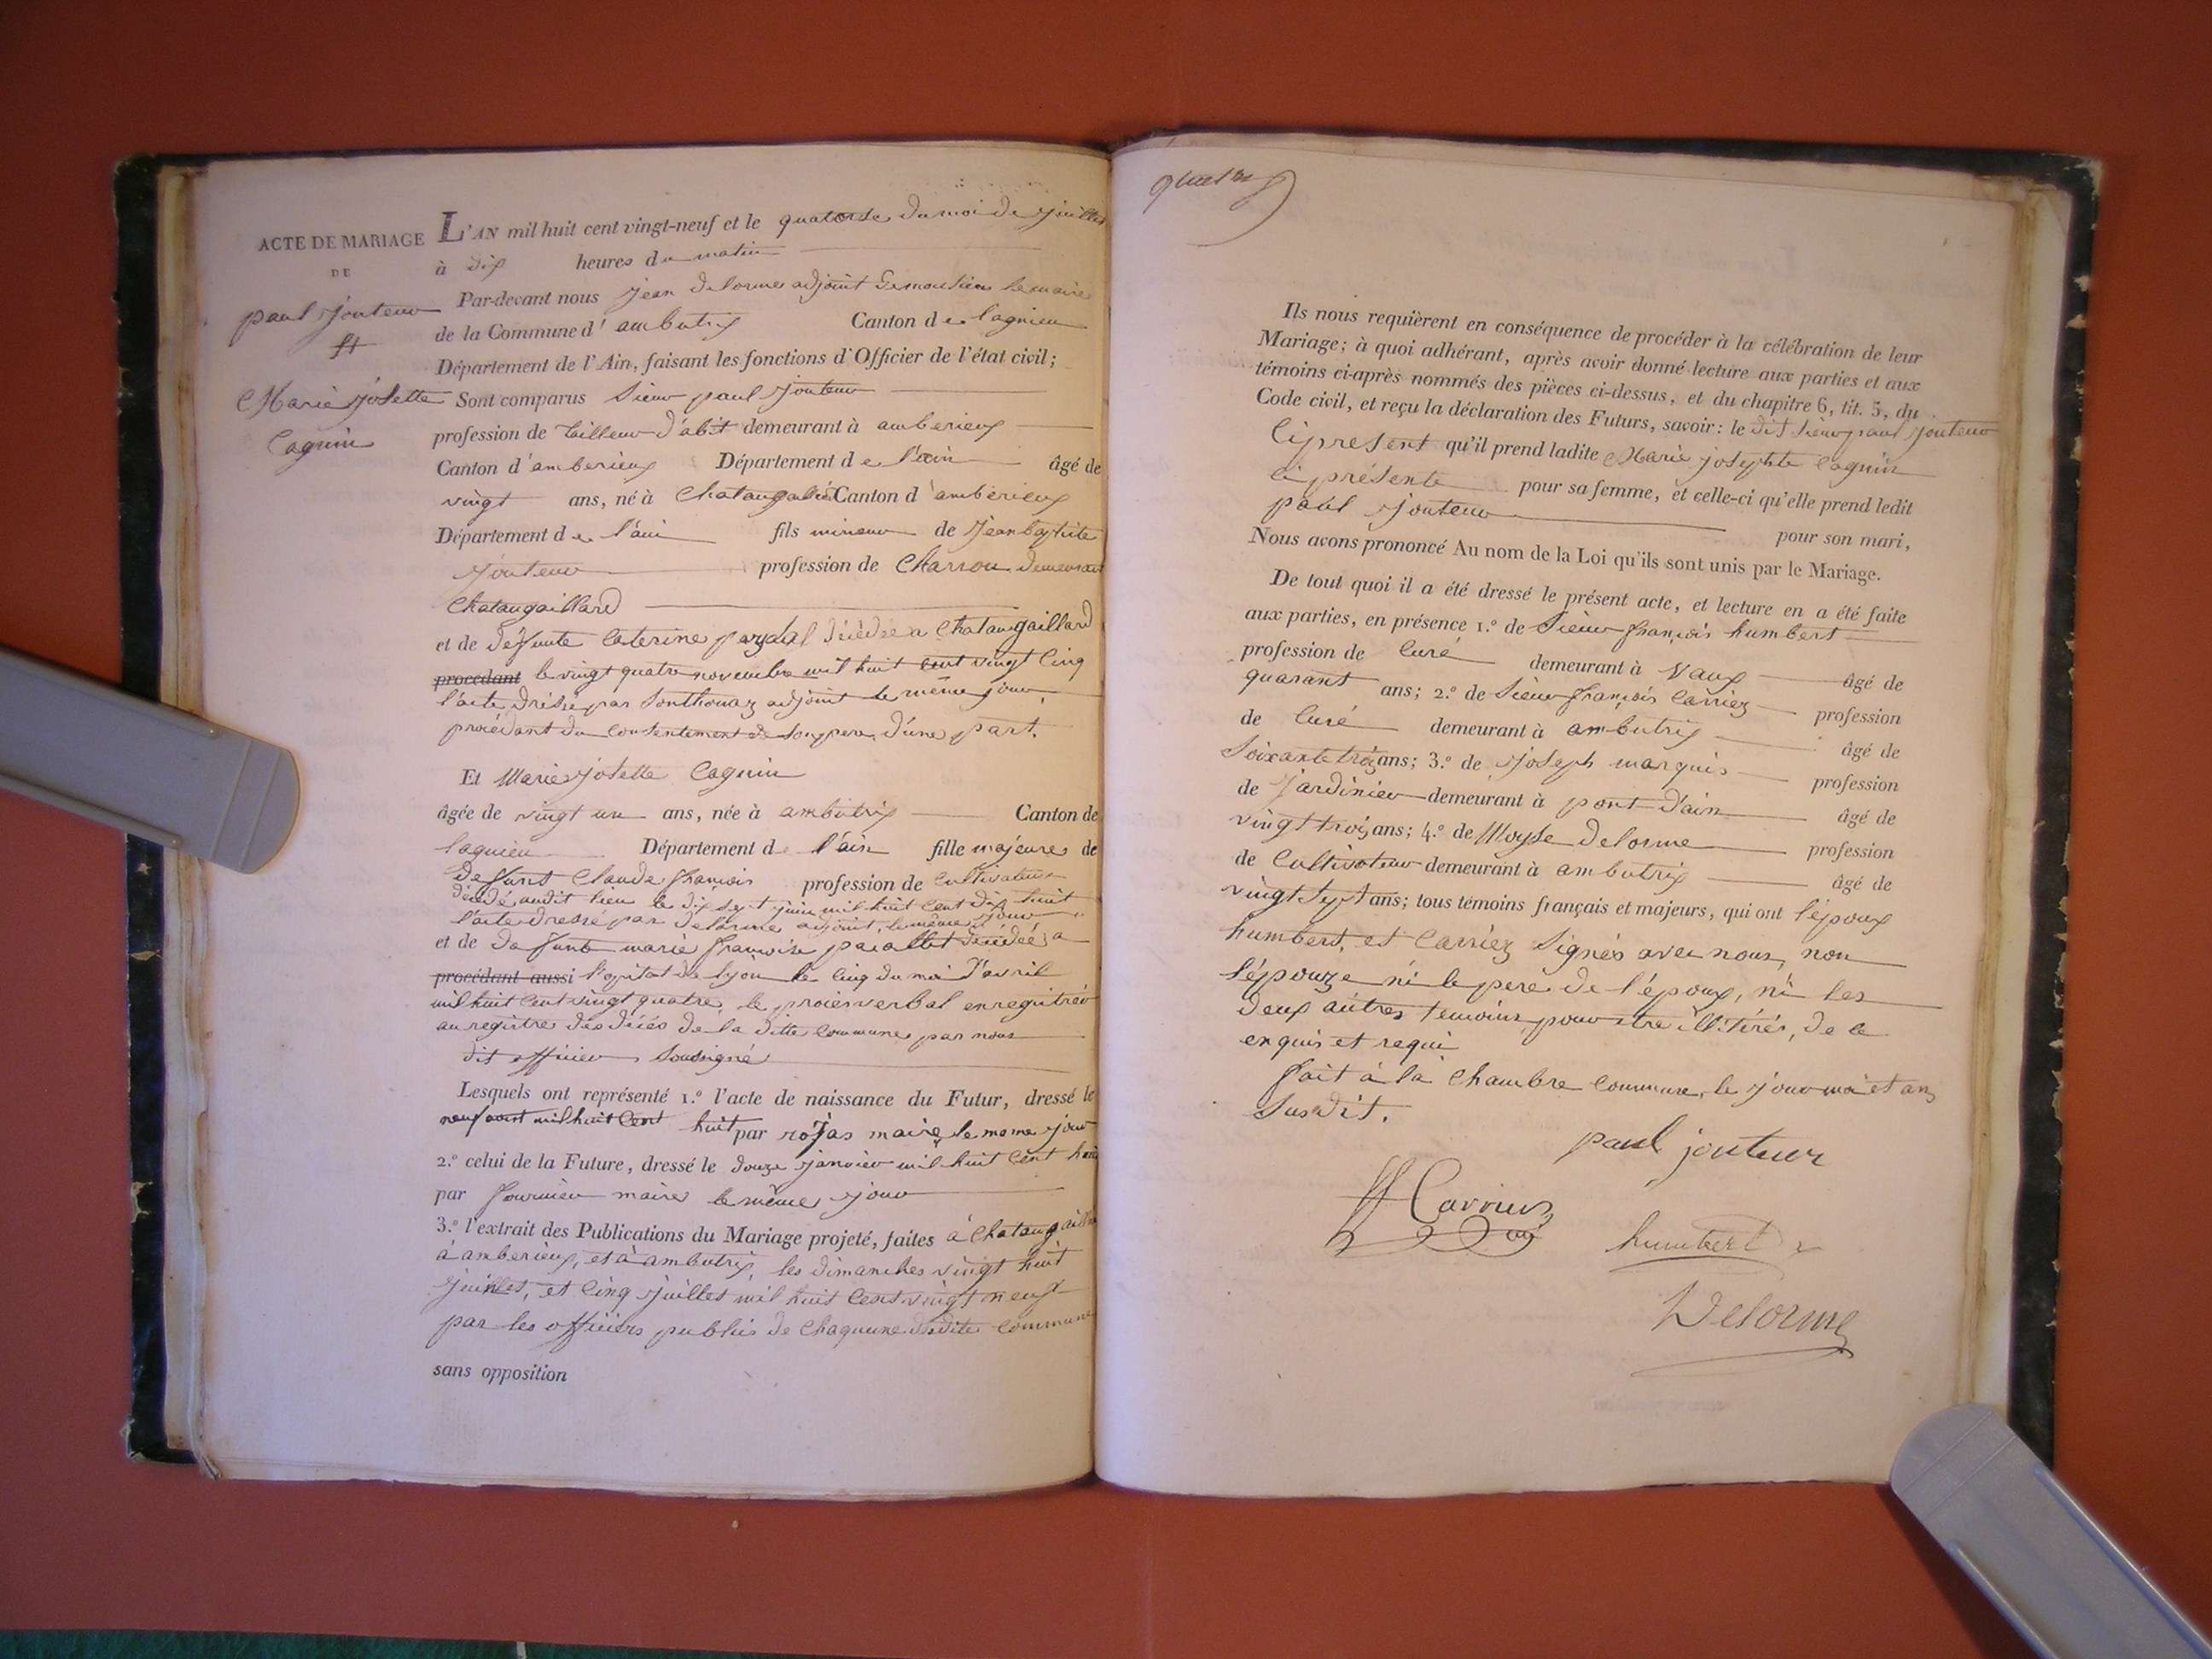 ACTE DE MARIAGE
DE
paul jouteur
et
Marie josette
Cagnin
L'AN mil huit cent vingt-neuf et le quatorse du moi de juillet
à dix heures du matin
Par-devant nous jean delorme adjoint de monsieur le maire
de la Commune d'ambutrix Canton de lagnieu
Département de l'Ain, faisant les fonctions d'Officier de l'état civil;
Sont comparus Sieur paul jouteur
profession de tailleur d'abit demeurant à amberieux
Canton d'amberieux Département de l'ain âgé de
vingt ans, né à Canton d'ambérieux
Département de l'ain fils mineur de jean baptiste
jouteur profession de Charron demeurant
Chataugaillard
et de défunte Caterine décédée a Chataugaillard
procédant le vingt quatre novembre mil huit cent vingt cinq
l'acte dréssé par adjoint le même jour,
procédant du consentement de son pere, d'une part.
Et Marie josette Cagnin
âgée de vingt un ans, née à ambutrix Canton de
lagnieu Département de l'ain fille majeure de
defunt Claude françois profession de Cultivateur
décédé audit lieu le dix sept juin mil huit cent dix huit
l'acte dressé par delorme adjoint, le même jour
et de defunte marie françoise décédée a
procédant aussi l'opital de lyon le cinq du moi d'avril
mil huit cent vingt quatre, le procès verbal enregitrér
au regitre des décés de la ditte commune par nous
dit officier Soussigné
Lesquels ont représenté 1.º l'acte de naissance du Futur, dressé le
neuf aout mil huit Cent huit par maire le meme jour
2.º celui de la Future, dressé le douze janvier mil huit cent huit
par fournier maire le même jour
3.º l'extrait des Publications du Mariage projeté, faites à
à amberieux, et à ambutrix, les dimanches vingt huit
et cinq juillet mil huit cent vingt neuf
par les officiers publis de chaquune commune
sans opposition
Ils nous requièrent en conséquence de procéder à la célébration de leur
Mariage; à quoi adhérant, après avoir donné lecture aux parties et aux
témoins ci-après nommés des pièces ci-dessus, et du chapitre 6, tit. 5, du
Code civil, et reçu la déclaration des Futurs, savoir: le dit sieur paul jouteur
Ci present qu'il prend ladite Marie josephte Cagnin
Ci présente pour sa femme, et celle-ci qu'elle prend ledit
paul jouteur pour son mari,
Nous avons prononcé Au nom de la Loi qu'ils sont unis par le Mariage.
De tout quoi il a été dressé le présent acte, et lecture en a été faite
aux parties, en présence 1.º de Sieur françois humbert
profession de Curé demeurant à Vaux âgé de
quarant ans; 2.º de Sieur françois Carriez profession
de Curé demeurant à ambutrix âgé de
Soixante trois ans; 3.º de joseph marquis profession
de Jardinier demeurant à pont d'ain âgé de
vingt trois ans; 4.º de Moyse Delorme profession
de Cultivateur demeurant à ambutrix âgé de
vingt sept ans; tous témoins français et majeurs, qui ont l'époux
humbert, et Carriez Signés avec nous, non
l'épouze ni le pere de l'époux, ni les
deux autres temoins pour etre illitérés, de ce
enquis et requi
fait à la Chambre commune, le jour moi et an
Susdit.
paul jouteur
humbert
Delorme